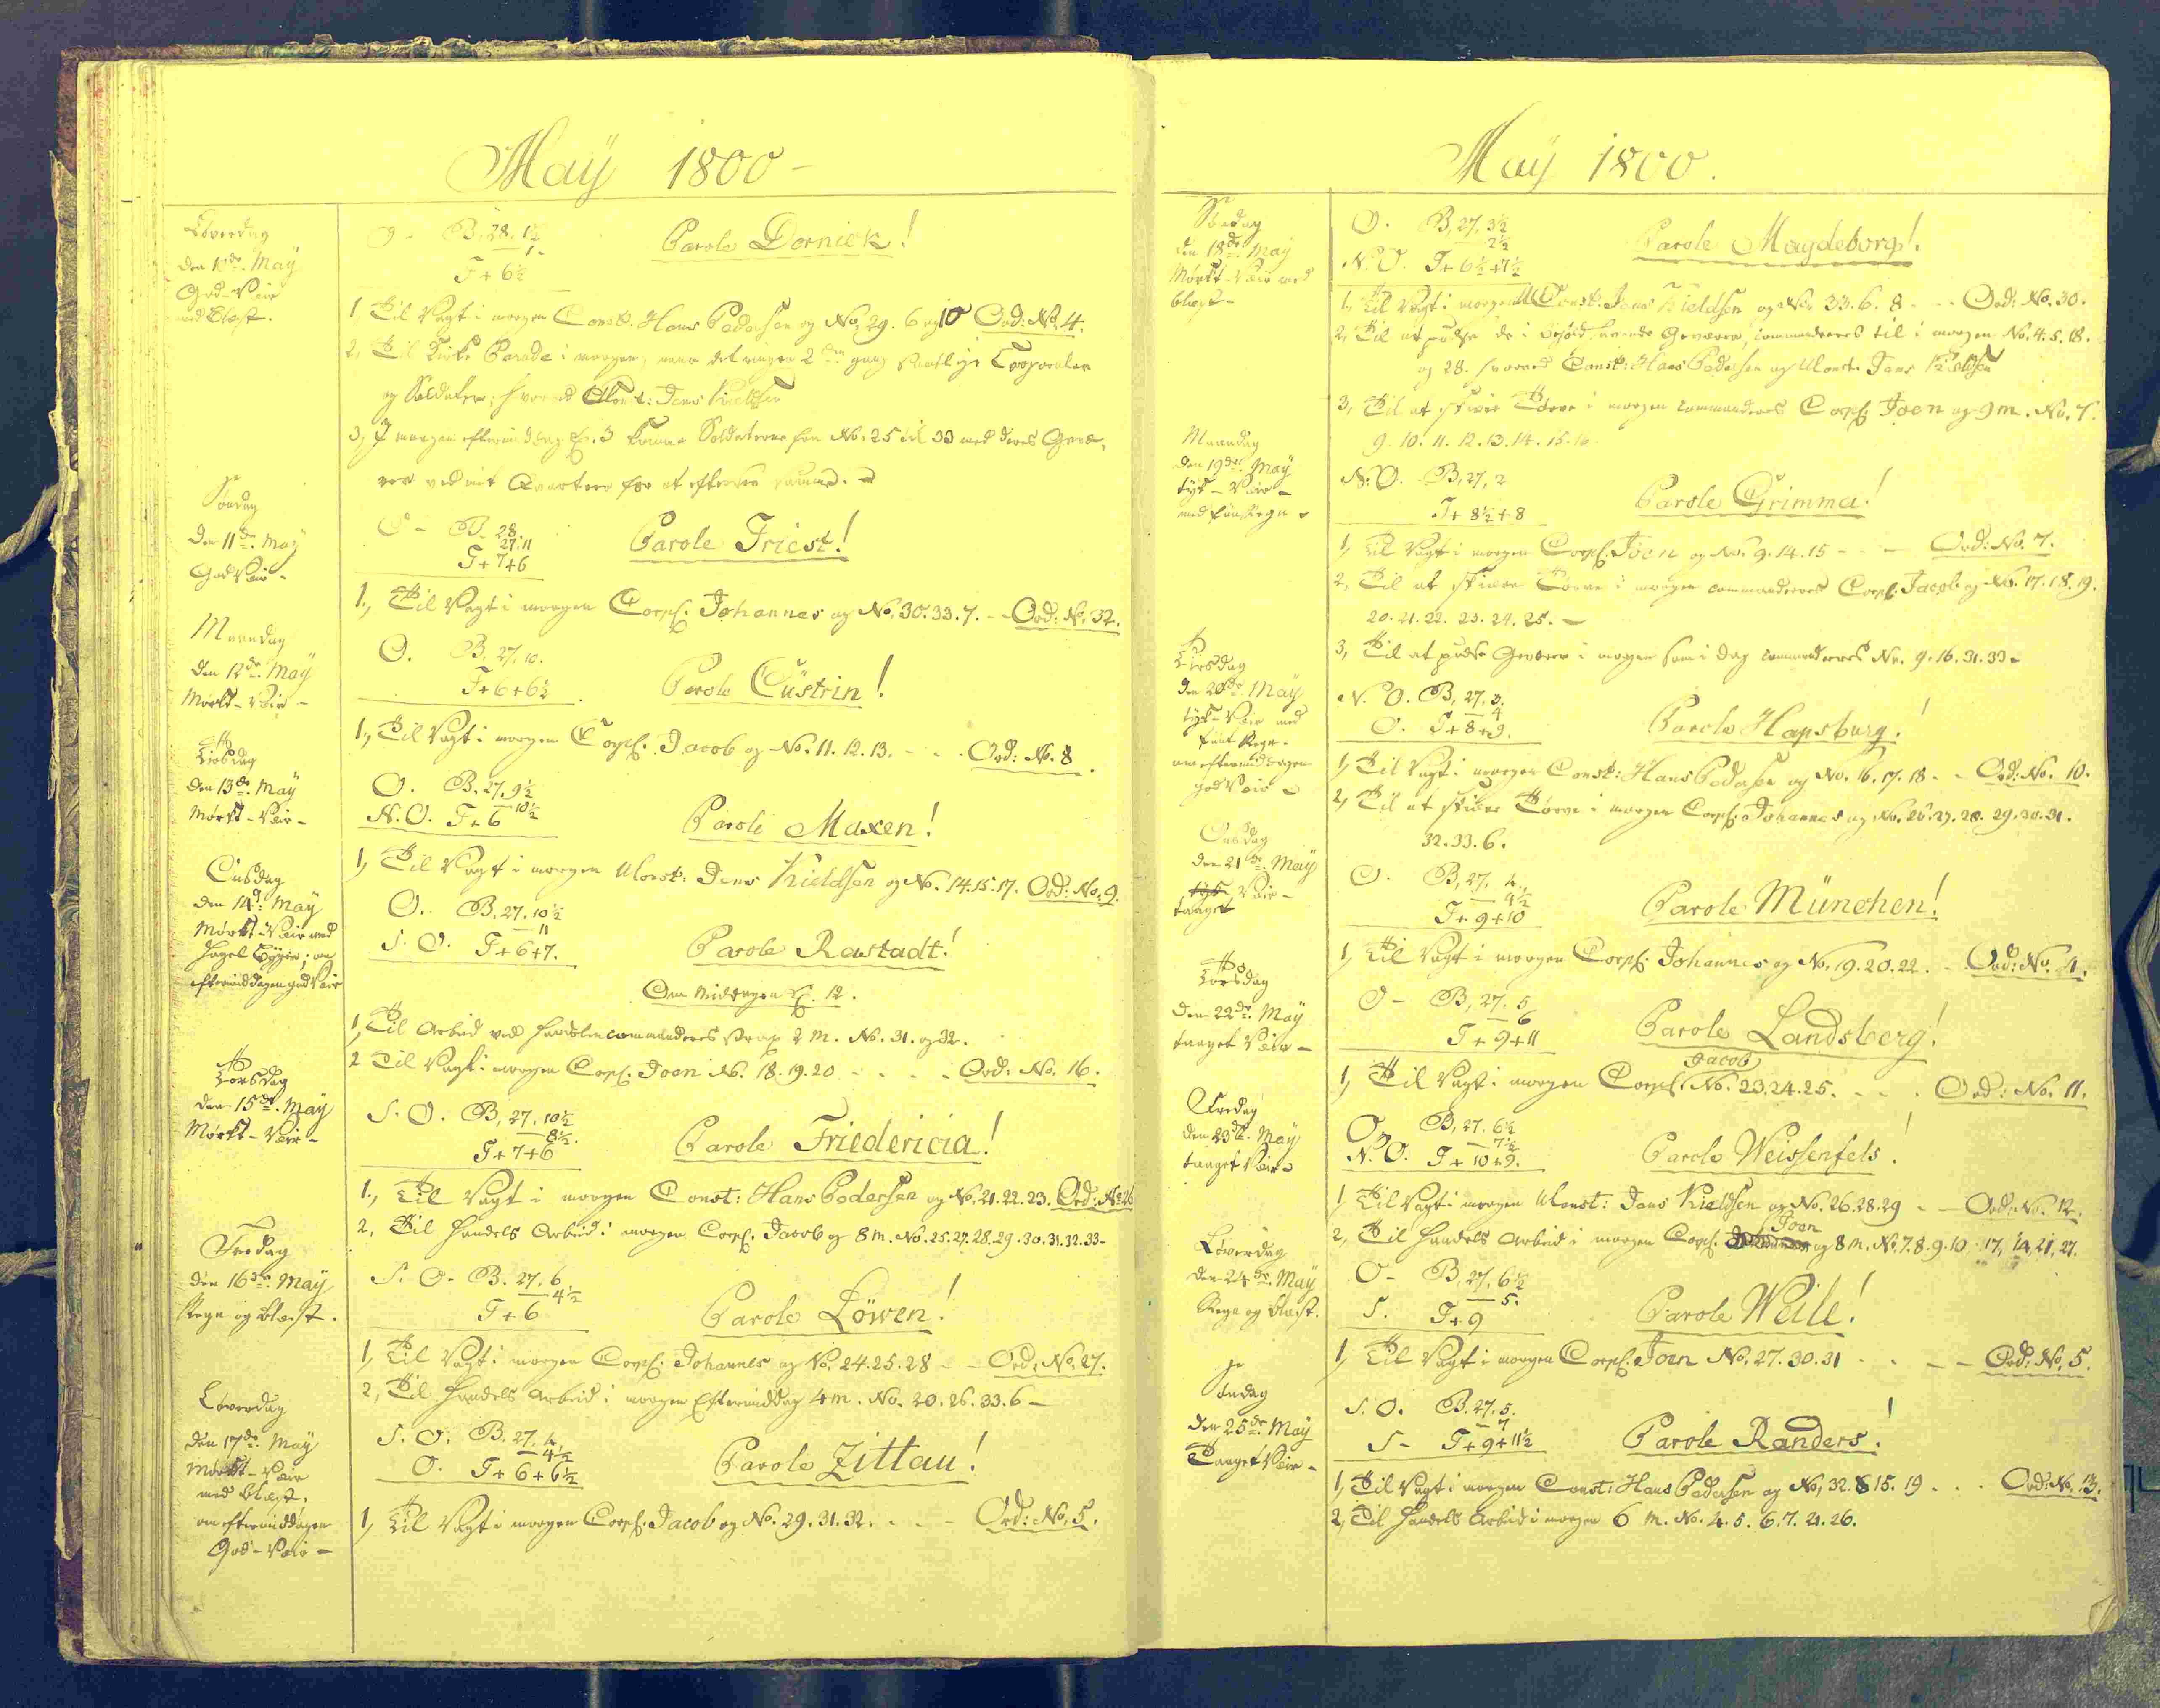 Maÿ 1800 -
Löverdag
den 10de. Maÿ
God-Veir
med Blæst.
O - B, 28. 1½
1.
T + 6½
Parole Dornick!
1, Til Vagt i morgen Const: Hans Pedersen og No. 29. 6 og 10 Ord: No. 4.
2, Til Kirke Parade i morgen, naar det ringer 2den gang samtlige Corporaler
og Soldater; hvorved Const: Jens Kieldsen
3, I morgen eftermiddag Kl. 3 komme Soldaterne fra No. 25 til 33 med deres Gevæ-
rer ved mit Qvarteer for at eftersee samme. -
Söndag
den 11te. Maÿ
God Veir -
O - B. 28.
27.11
T + 7+6
Parole Friest!
1., Til Vagt i morgen Corpl: Johannes og No. 30. 33. 7. - Ord: No. 32.
Mandag
den 12te. Maÿ
Mörkt-Veir -
O. B. 27. 10.
T + 6 + 6½
Parole Cüstrin!
1., Til Vagt i morgen Corpl: Jacob og No. 11. 12. 13. - - - Ord: No. 8.
Tirsdag
den 13de. Maÿ
Mörkt-Veir -
O. B. 27. 9½
- 10½
N. O. T + 6
Parole Maxen!
1, Til Vagt i morgen Const: Jens Kieldsen og No. 14. 15. 17. Ord: No. 9.
Onsdag
den 14de. Maÿ
Mörkt-Veir med
Hagel Byger; om
eftermiddagen god Veir
O. B, 27. 10½
- 11
S. O. T + 6+7.
Parole Rastadt!
Om Middagen Kl. 12.
1, Til Arbeid ved Handelen commanderes strax 2 M. No. 31. og 32.
2 Til Vagt i morgen Corpl: Joen No. 18. 19. 20 - - - - Ord: No. 16.
Torsdag
den 15de. Maÿ
Mörkt-Veir -
S. O. B, 27. 10½
- 8½.
T + 7+6
Parole Friedericia!
1., Til Vagt i morgen Const: Hans Pedersen og No. 21. 22. 23. Ord: No. 26
2, Til Handels Arbeid i morgen Corpl: Jacob og 8 m. No. 25. 27. 28. 29. 30. 31. 32. 33-
Fredag
den 16de. Maÿ
Regn og Blæst.
S. O. B. 27. 6
- 4½
T + 6
Parole Löwen!
1, Til Vagt i morgen Corpl: Johannes og No. 24. 25. 28 - - Ord: No. 27.
2, Til Handels Arbeid i morgen Eftermiddag 4 m. No. 20. 26. 33. 6 -
Löverdag
den 17de. Maÿ
Mörkt-Veir
med Blæst.
om eftermiddagen
God-Veir -
S. O. B. 27. 4
- 4½
O. T + 6 + 6½
Parole Zittau!
1, Til Vagt i morgen Corpl: Jacob og No. 29. 31. 32. - - - Ord: No. 5.
Maÿ 1800.
Söndag
den 18de. Maÿ
Mörkt-Veir med
blæst -
O. B, 27. 3½
- 2½
N. O. T + 6½ + 7½
Parole Magdeborg!
1, Til Vagt i morgen Const: Jens Kieldsen og No. 33. 6. 8 - - - Ord: No. 30.
2, Til at pudse de i behold havende Geværer, commanderes til i morgen No. 4. 5. 18.
og 28. hvorved Const: Hans Pedersen og Const: Jens Kieldsen
3, Til at skiære Törve i morgen commanderes Corpl: Joen og 9 m. No. 7.
9. 10. 11. 12. 13. 14. 15. 16.
Maandag
den 19de. Maÿ
tÿk-Veir -
med fiin Regn -
N. O. B, 27, 2
T + 8½ + 8
Parole Grimma!
1, Til Vagt i morgen Corpl: Joen og No. 9. 14. 15 - - - Ord: No. 7.
2, Til at skiære Törve i morgen commanderes Corpl: Jacob og No. 17. 18. 19.
20. 21. 22. 23. 24. 25. -
3, Til at pudse Geværer i morgen som i dag commanderes No. 9. 16. 31. 33 -
Tirsdag
den 20de. Maÿ
tÿk-Veir med
fiint Regn -
om eftermiddagen
god Veir -
N. O. B, 27, 3.
- 4
O. T + 8+9.
Parole Hapsburg!
1, Til Vagt i morgen Const: Hans Pedersen og No. 16. 17. 18 - - Ord: No. 10.
2, Til at skiære Törve i morgen Corpl: Johannes og No. 26. 27. 28. 29. 30. 31.
32. 33. 6.
Onsdag
den 21de. Maÿ
tÿk Veir -
taaget
O. B, 27. 4.
- 4½
T + 9+10
Parole München!
1, Til Vagt i morgen Corpl: Johannes og No. 19. 20. 22. - Ord: No. 4.
Torsdag
den 22de. Maÿ
taaget Veir -
O - B, 27. 5
- 6
T + 9+11
Parole Landsberg!
Jacob
1, Til Vagt i morgen Corpl: No. 23. 24. 25. - - - Ord: No. 11.
Fredag
den 23de. Maÿ
taaget Veir -
O. B, 27. 6½
- 7½
N. O. T + 10+9.
Parole Weissenfels!
1, Til Vagt i morgen Const: Jens Kieldsen og No. 26. 28. 29 - - Ord: No. 12.
Joen
2, Til Handels Arbeid i morgen Corpl: og 8 m. No. 7. 8. 9. 10. 17, 14, 21, 27.
Löverdag
den 24de. Maÿ
Regn og blæst.
O - B, 27. 6½
- 5.
S. T + 9
Parole Weile!
1, Til Vagt i morgen Corpl: Joen No. 27. 30. 31 - - - - Ord: No. 5.
Söndag
den 25de. Maÿ
Taaget Veir -
S. O. B. 27. 5.
- 7
S - T + 9 + 11½
Parole Randers!
1, Til Vagt i morgen Const: Hans Pedersen og No. 32. 8 15. 19 . . . Ord: No. 13.
2, Til Handels Arbeid i morgen 6 m. No. 4. 5. 6. 7. 21. 26.